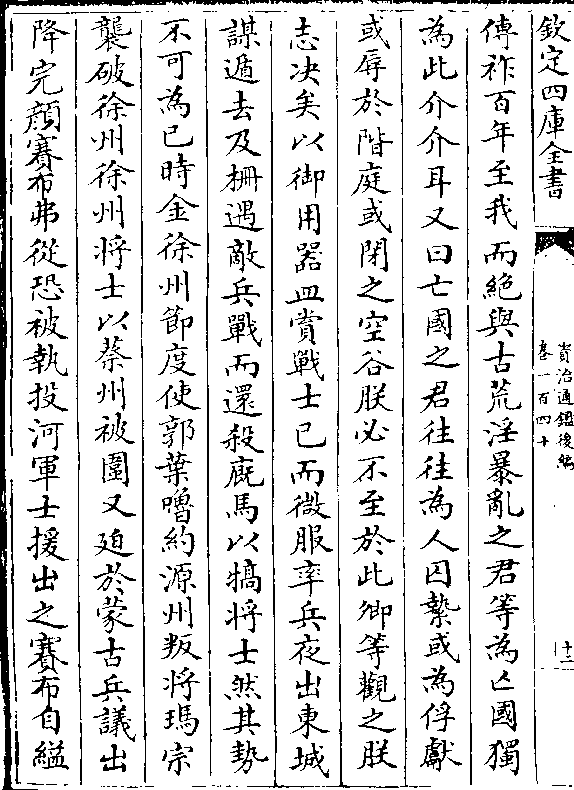 欽定四庫全書
資治通鑑後編
卷一百四十
十二
傳祚百年至我而絶與古荒淫暴亂之君等為亡國獨
為此介介耳又曰亡國之君往往為人囚縶或為俘獻
或辱於階庭或閉之空谷朕必不至於此卿等觀之朕
志决矣以御用器皿賞戰士已而微服率兵夜出東城
謀遁去及栅遇敵兵戰而還殺廐馬以犒將士然其勢
不可為已時金徐州節度使郭葉嚕約源州叛將瑪宗
襲破徐州徐州將士以蔡州被圍又廹於蒙古兵議出
降完顔賽布弗從恐被執投河軍士援出之賽布自縊